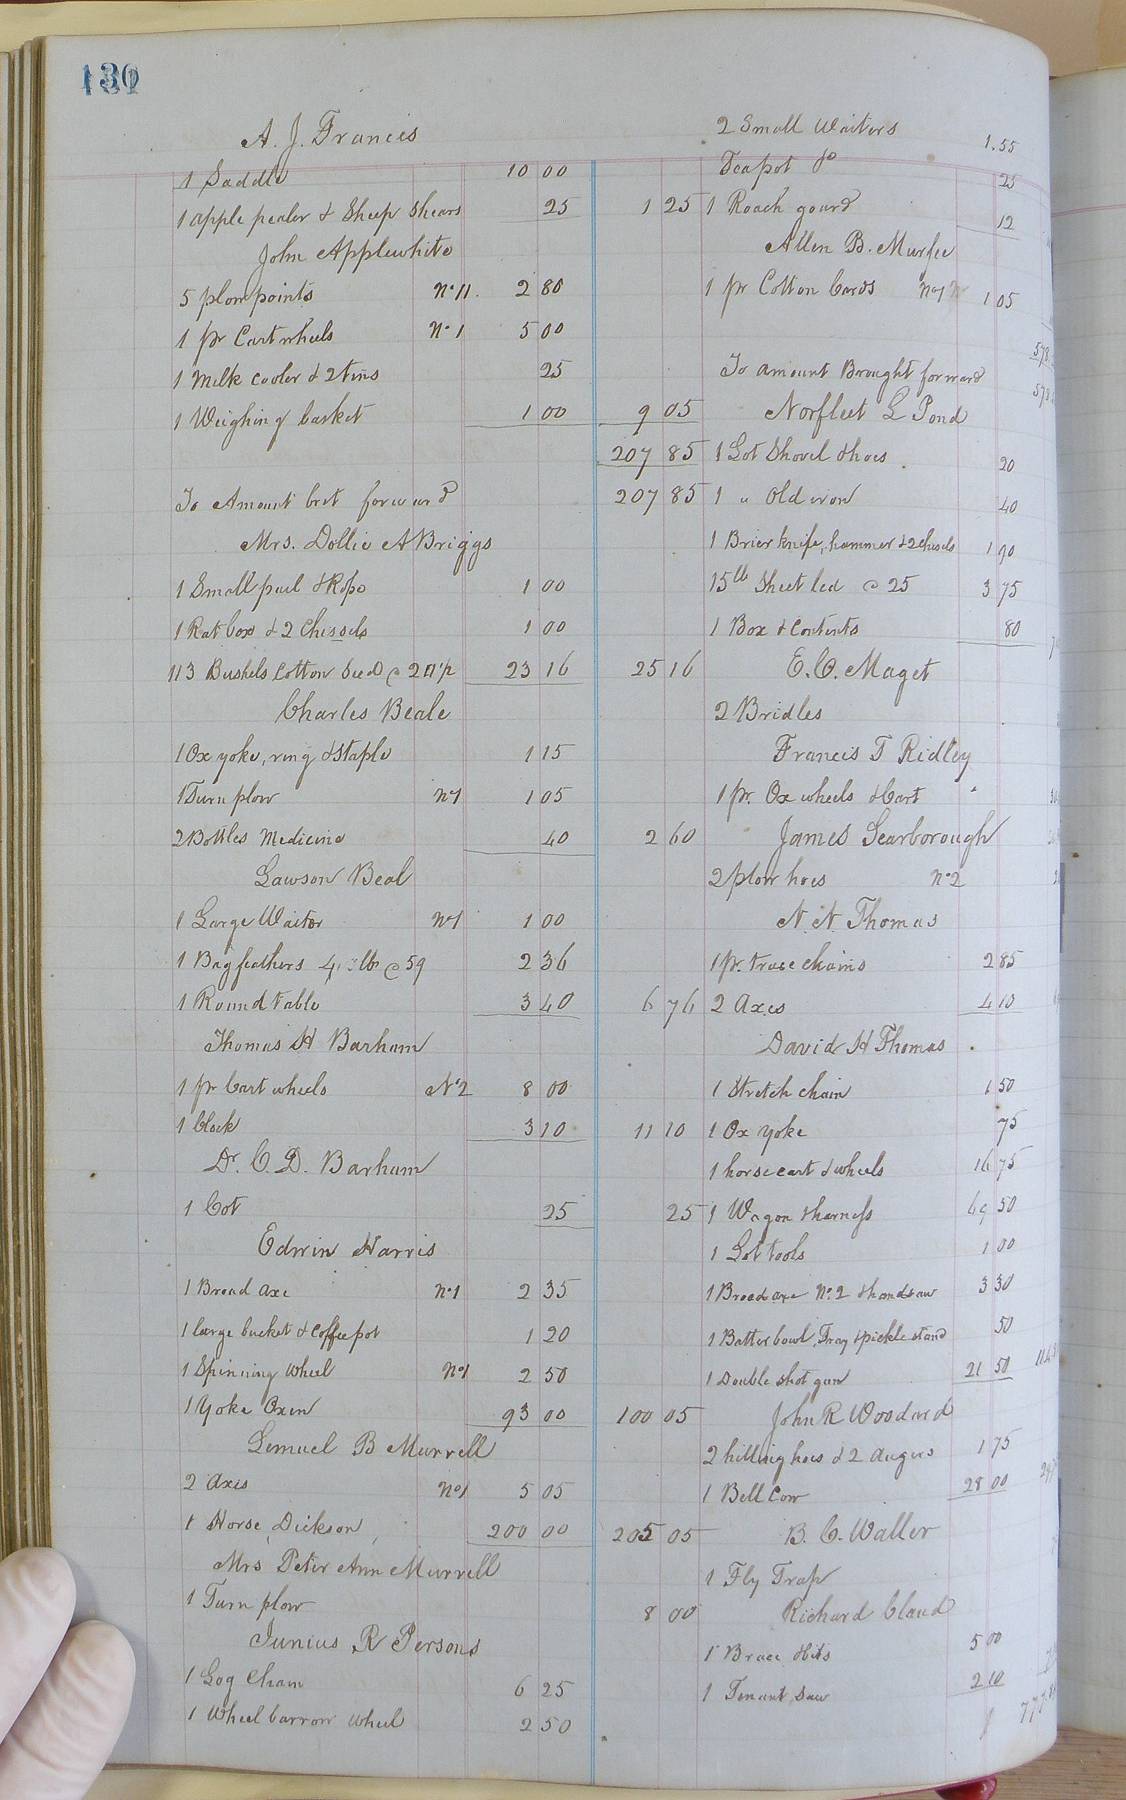 130
A. J. Francis
1 Saddle 10 00
1 apple pealer & Sheep Shears 25 1 25
John Applewhite
5 plow points No 11. 2 80
1 pr Cart wheels No 1 5 00
1 Milk cooler & 2 tins 25
1 Weighing basket 1 00 9 05
207 85
To Amount brt forward 207 85
Mrs. Dollie A Briggs
1 Small pail & Rope 1 00
1 Rat box & 2 Chissels 1 00
113 Bushels Cotton Seed @ 23 16 25 16
Charles Beale
1 Ox yoke, ring & staple 1 15
1 Turn plow No 1 1 05
2 Bottles Medicine 40 2 60
Lawson Beal
1 Large Waiter No 1 1 00
1 Bag feathers lbs @ 59 2 36
1 Round table 3 40 6 76
Thomas H Barham
1 pr Cart wheels No 2 8 00
1 Clock 3 10 11 10
Dr. C. D. Barham
1 Cot 25 25
Edwin Harris
1 Broad axe No 1 2 35
1 large bucket & coffee pot 1 20
1 Spinning Wheel No 1 2 50
1 Yoke Oxen 93 00 100 05
Lemuel B Murrell
2 Axes No 1 5 05
1 Horse, Dickson, 200 00 205 05
Mrs Peter Ann Murrell
1 Turn plow 8 00
Junius R Persons
1 Log Chain 6 25
1 Wheelbarrow Wheel 2 50
2 Small Waiters 1.55
Teapot do 25
1 Roach gourd 12
Allen B. Murfee
1 pr Cotton Cards No 1 1 05
To amount Brought forward
Norfleet L Pond
1 Lot Shovel & hoes 20
1 " Old iron 40
1 Brier knife, hammer & 2 chisels 1 90
15 lb Sheet led @ 25 3 75
1 Box & Contents 80
E. C. Maget
2 Bridles
Francis T Ridley
1 pr. Ox wheels & Cart
James Scarborough
2 plow hoes No 2
N. N. Thomas
1 pr. trace chains 2 85
2 Axes 4 10
David H Thomas
1 Stretch chain 1 50
1 Ox yoke 75
1 horse cart & wheels 16 75
1 Wagon & harness 69 50
1 Lot tools 1 00
1 Broad axe No. 2 & handsaw 3 30
1 Batter bowl, Tray & pickle stand 50
1 Double shot gun 21 50
John R Woodard
2 hilling hoes & 2 Augers 1 75
1 Bell Cow 28 00
B. C. Waller
1 Fly Trap
Richard Claud
1 Brace & bits 5 00
1 Tenant Saw 2 10